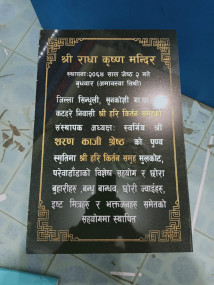 श्री राधा कृष्ण मन्दिर
स्थापनाः२०६४ साल जेष्ठ २ गते
बुधवार (अमावस्या तिथी)
जिल्ला सिन्धुली, सुनकोशी गा.पा.
निवासी श्री हरि किर्तन समुहका
संस्थापक अध्यक्षः स्वर्गिय श्री
शरण काजी श्रेष्ठ को पुण्य
स्मृतिमा श्री हरि किर्तन समुह मुलकोट,
परेवाडाँडाको विशेष सहयोग र छोरा
बुहारीहरु ,बन्धु बान्धव, छोरी ज्वाईहरु,
इष्ट मित्रहरु र भक्तजनहरु समेतको
सहयोगमा स्थापित